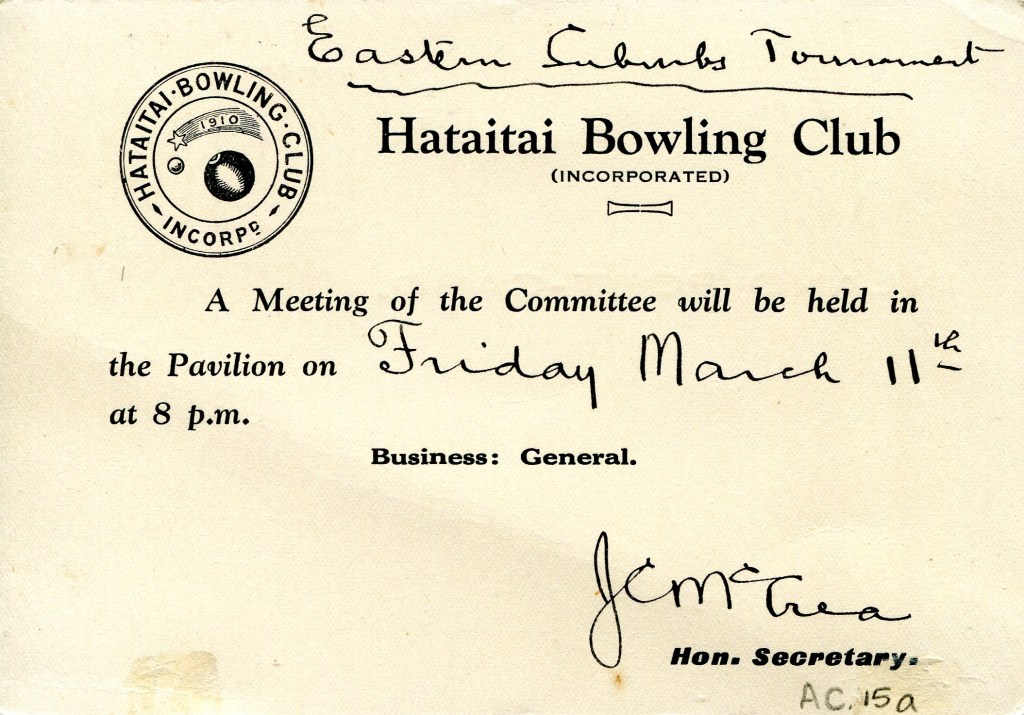 Eastern Suburbs Tournament
HATAITAI · BOWLING · CLUB
INCORPD
1910
Hataitai Bowling Club
(INCORPORATED)
A Meeting of the Committee will be held in
the Pavilion on Friday March 11th
at 8 p.m.
Business: General.
J C McCrea
Hon. Secretary.
AC. 15a